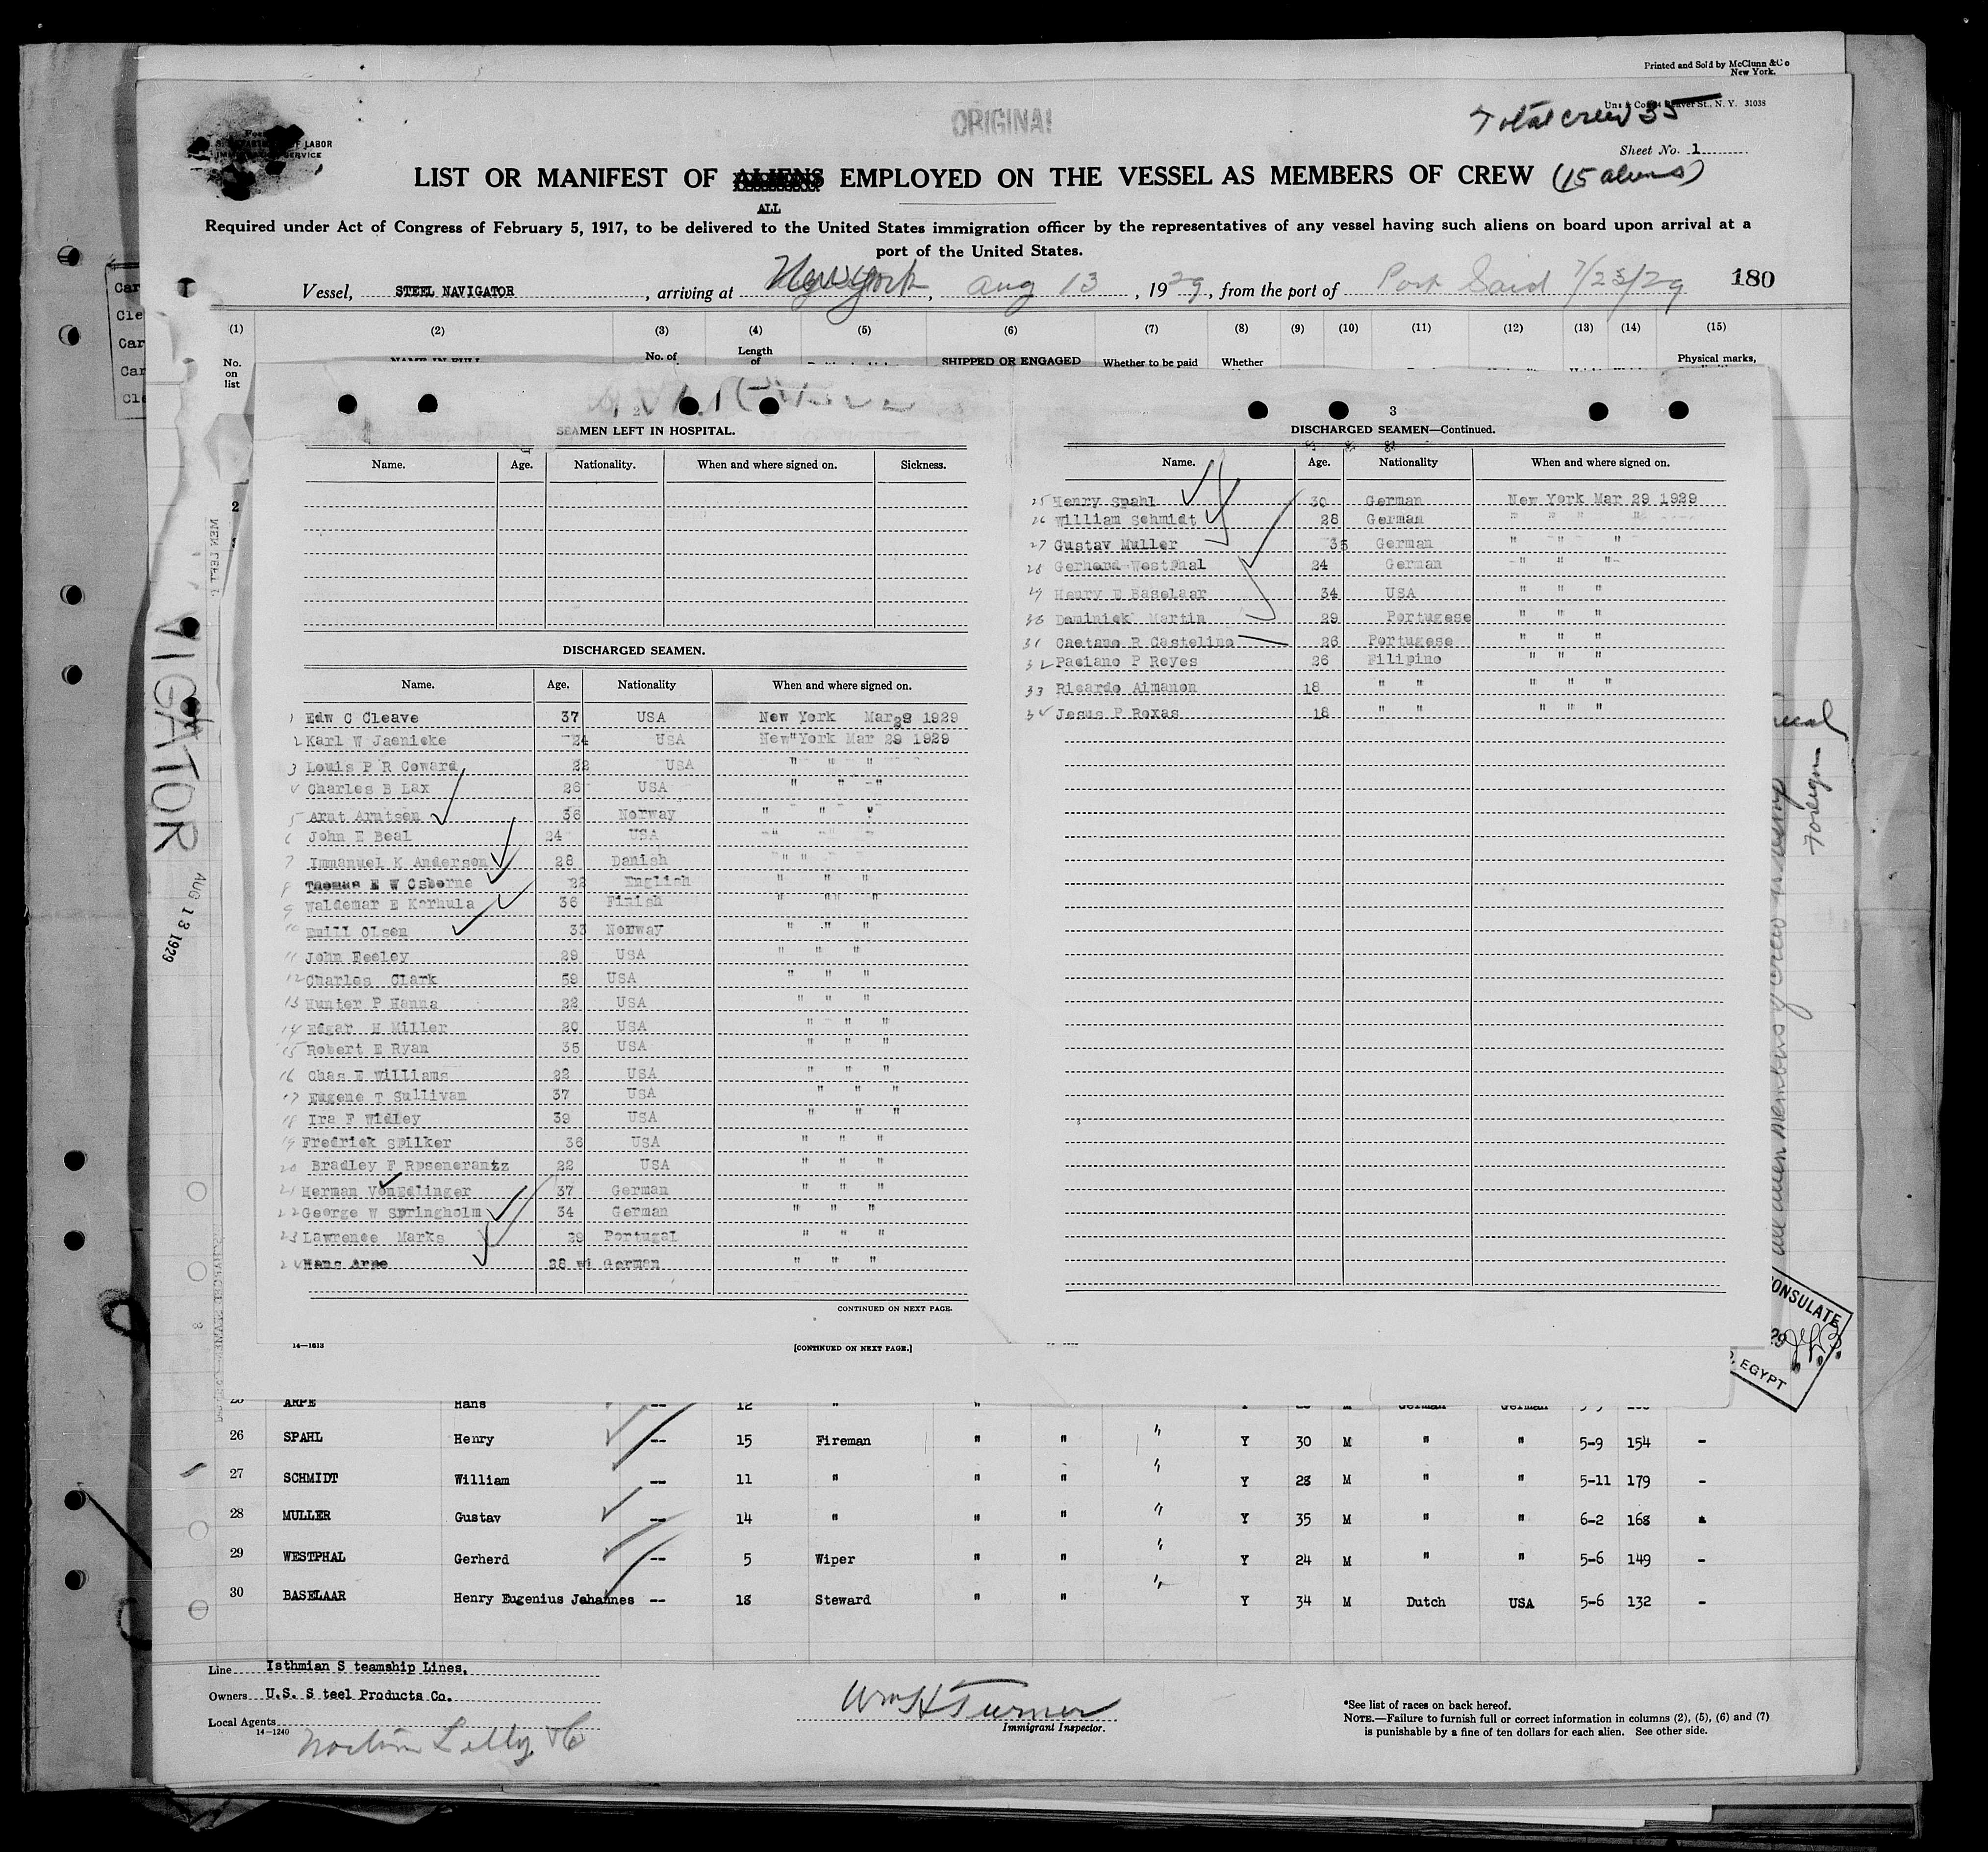 Printed and Sold by McClunn & Co
New York.
ORIGINAL
Total crew 35
Sheet No. 1
LIST OR MANIFEST OF ALIENS EMPLOYED ON THE VESSEL AS MEMBERS OF CREW (15 aliens)
ALL
Required under Act of Congress of February 5, 1917, to be delivered to the United States immigration officer by the representatives of any vessel having such aliens on board upon arrival at a
port of the United States.
Vessel, STEEL NAVIGATOR, arriving at New York, Aug 13, 1929, from the port of Port Said 7/25/29 180
(1) (2) (3) (4) (5) (6) (7) (8) (9) (10) (11) (12) (13) (14) (15)
No. on list No. of Length of SHIPPED OR ENGAGED Whether to be paid Whether Physical marks,
2
SEAMEN LEFT IN HOSPITAL.
Name. Age. Nationality. When and where signed on. Sickness.
DISCHARGED SEAMEN.
Name. Age. Nationality When and where signed on.
1 Edw C Cleave 37 USA New York Mar 29 1929
2 Karl W Jaenicke 24 USA New York Mar 29 1929
3 Louis P R Coward 22 USA " " "
4 Charles B Lax 26 USA " " "
5 Arut Arutsen 36 Norway " " "
6 John E Beal 24 USA " " "
7 Immanuel K Anderson 28 Danish " "
8 Thomas E W Osborne 22 English " " "
9 Waldemar E Korhula 36 Finish " " "
10 Emill Olsen 33 Norway " " "
11 John Feeley 29 USA " " "
12 Charles Clark 59 USA " " "
13 Hunter P Hanna 22 USA " " "
14 Edgar H Miller 20 USA " " "
15 Robert E Ryan 35 USA " " "
16 Chas E Williams 22 USA " " "
17 Eugene T Sullivan 37 USA " " "
18 Ira F Widley 39 USA " " "
19 Fredrick Spilker 36 USA " " "
20 Bradley F Rosenerantz 22 USA " " "
21 Herman VonEdlinger 37 German " " "
22 George W Springholm 34 German " " "
23 Lawrence Marks 29 Portugal " " "
24 Hans Arpe 28 German " " "
CONTINUED ON NEXT PAGE.
3
DISCHARGED SEAMEN—Continued.
Name. Age. Nationality When and where signed on.
25 Henry Spahl 30 German New York Mar 29 1929
26 William Schmidt 28 German " " " "
27 Gustav Muller 35 German " " "
28 Gerherd Westphal 24 German " " "
29 Henry E Baselaar 34 USA " " "
30 Dominick Martin 29 Portugese " " "
31 Caetano R Castelino 26 Portugese " " "
32 Paciano P Reyes 26 Filipino " " "
33 Ricardo Aimanon 18 " " " " "
34 Jesus P Roxas 18 " " " " "
14—1613 [CONTINUED ON NEXT PAGE.]
ARPE Hans 12 " "
26 SPAHL Henry -- 15 Fireman " " " Y 30 M " " 5-9 154 -
27 SCHMIDT William -- 11 " " " " Y 28 M " " 5-11 179 -
28 MULLER Gustav -- 14 " " " " Y 35 M " " 6-2 168
29 WESTPHAL Gerherd -- 5 Wiper " " " Y 24 M " " 5-6 149 -
30 BASELAAR Henry Eugenius Johannes -- 18 Steward " " " Y 34 M Dutch USA 5-6 132 -
Line Isthmian S teamship Lines.
Owners U.S. S teel Products Co.
Local Agents Norton Lilly & Co
14—1240
Wm H Turner
Immigrant Inspector.
*See list of races on back hereof.
NOTE.—Failure to furnish full or correct information in columns (2), (5), (6) and (7)
is punishable by a fine of ten dollars for each alien. See other side.
VIGATOR
AUG 13 1929
all alien members of crew
Foreign
ONSULATE
29
EGYPT